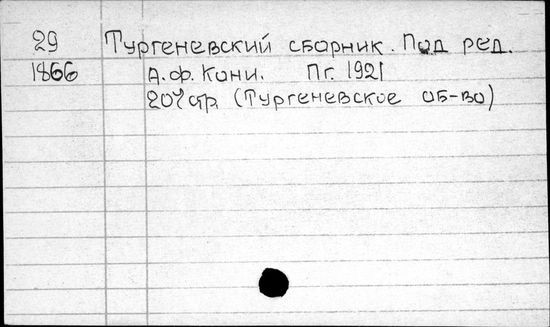 29 Тургеневский сборник. Под ред.
1866 А.Ф. Кони. Пг. 1921
204 стр. (Тургеневское об-во)